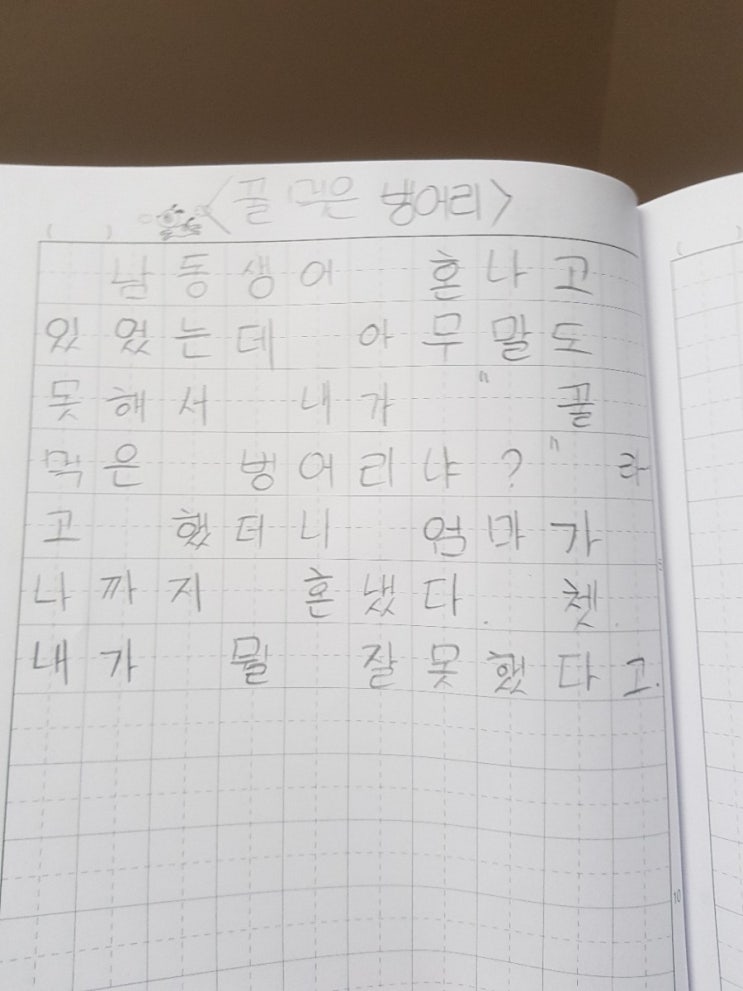 <꿀 먹은 벙어리>
남동생이 혼나고
있었는데 아무말도
못해서 내가 " 꿀
먹은 벙어리냐? " 라
고 했더니 엄마가
나까지 혼냈다. 쳇.
내가 뭘 잘못했다고.
10